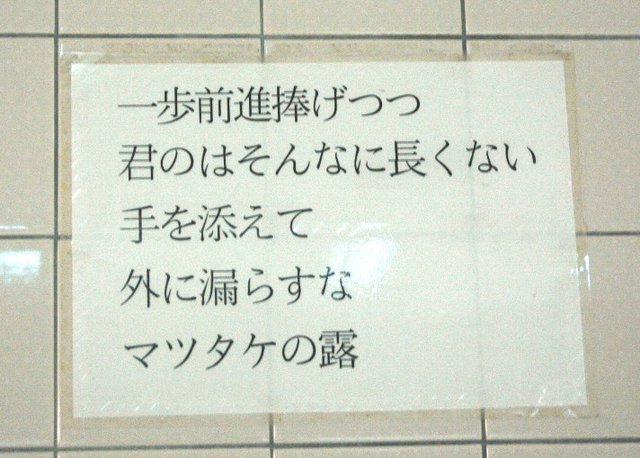 一歩前進捧げつつ
君のはそんなに長くない
手を添えて
外に漏らすな
マツタケの露